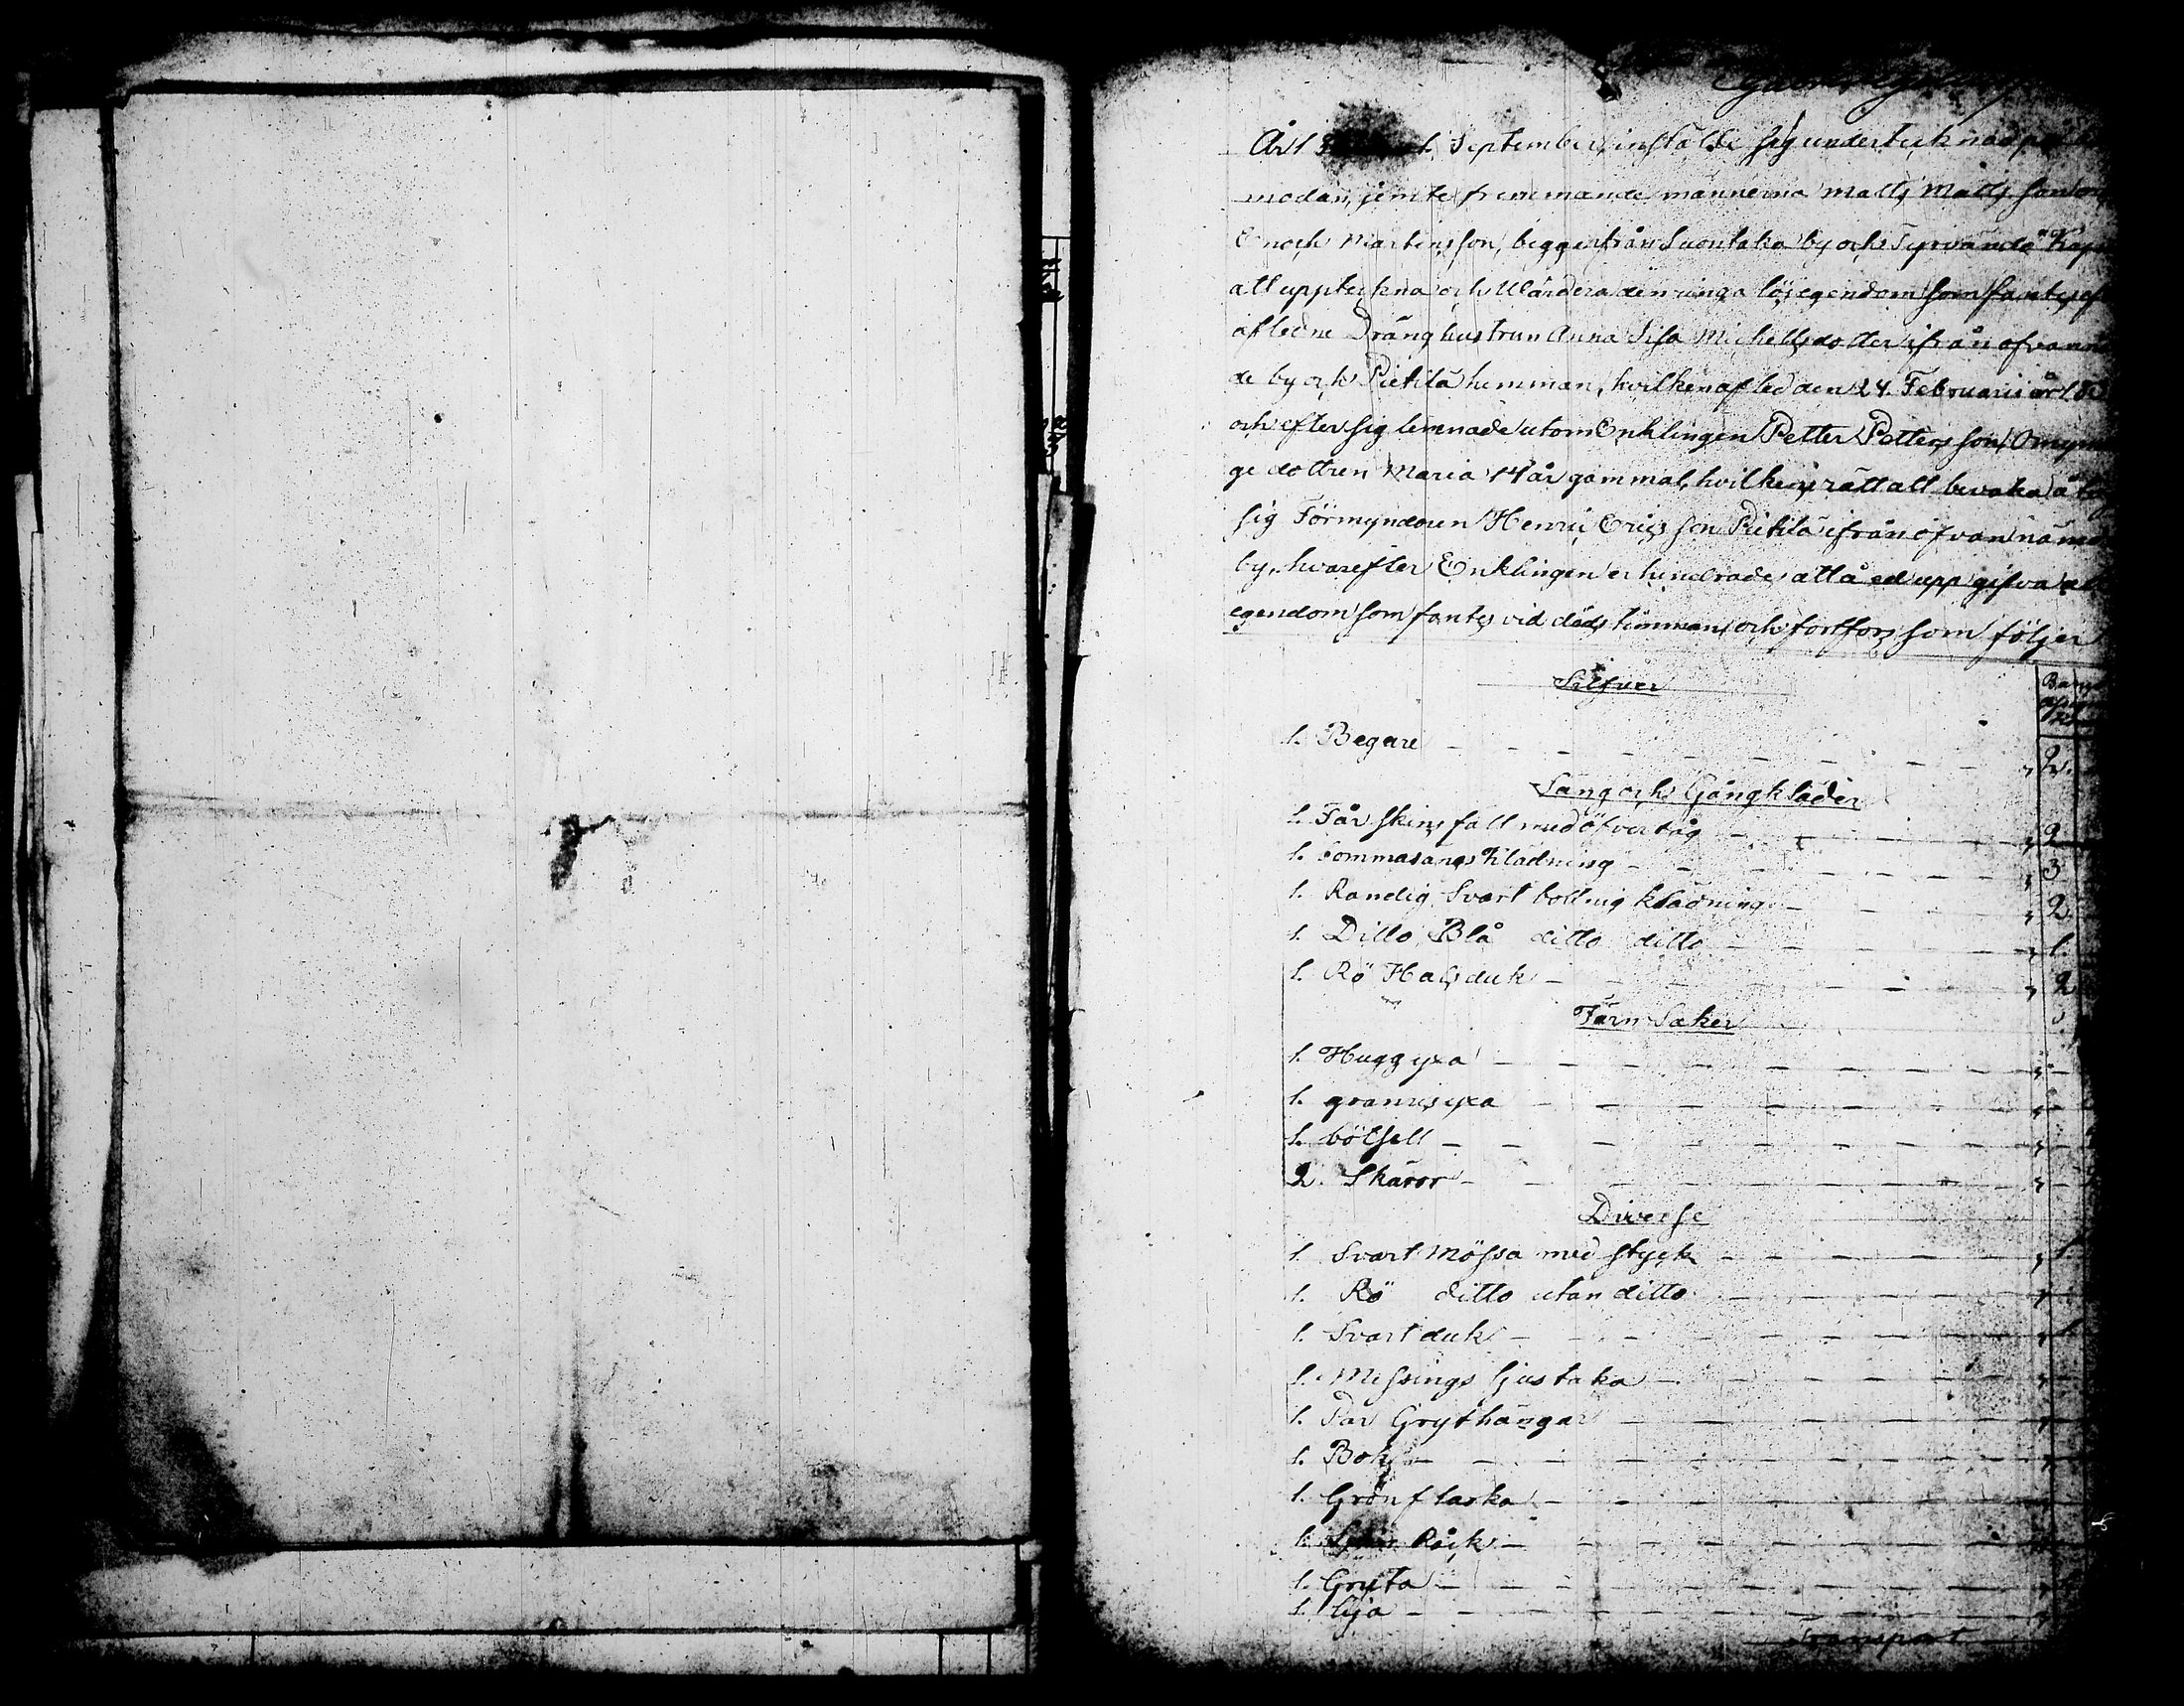 År 18 1. September, instälde sig undertecknad på
modan, jemte fremmande männerna Matts Mattsson
Enoch Mårtensson, begge från Suontaka by och Tyrvändö Kap
att uppteckna och Värdera den ringa lösegendom som fantes ef
aflidne Dränghustrun Anna Lisa Michellsdotter ifrån ofvannä
de by och Pietilä hemman, hvilken afled den 24. Februarii
och efter sig lemnade utom Enklingen Petter Pettersson, Omyn
ge dottren Maria 14 år gammal, hvilkens rätt att bevaka åtog
sig Förmyndaren Henric Ericsson Pietilä ifrån ofvannämn
by, hvarefter Enklingen erhindrades att å ed uppgifva all
egendom som fantes vid dödstimman och fortfors som följer
Silfver
Banco
1. Begare - - - 2.
Säng och Gångkläder
1. Fårskinsfäll med öfvertåg - - - 2
1. Sommarangs Klädning - - - 3
1. Randig Svart bottnig klädning - - - 2
1. Ditto Blå ditto ditto - - - 1.
1. Rö Halsduk - - - 2
Järn Saker
1. Huggyxa - - -
1. granrisyxa - - -
1. bötsell - - -
2. Skäror - - -
Diverse
1. Svart Mössa med styck - - - 1.
1. Rö ditto utan ditto - - -
1. Svart duk - - - 1.
1. Messings ljustaka - - -
1. Par Grythängar - - -
1. Bok - - -
1. Grön flaska - - -
1. Råck - - -
1. Gryta - - -
1. lija - - -
Transport